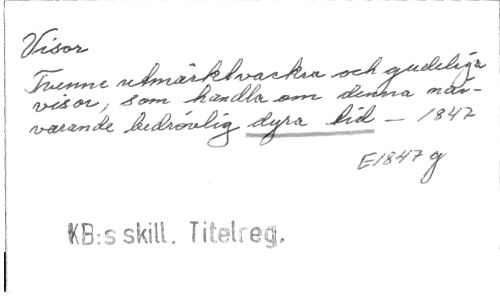 Visor
Tvenne utmärktvackra och gudeliga
visor, som handla om denna när-
varande bedröwlig dyra tid — 1847
E1847g
KB:s skill. Titelreg.